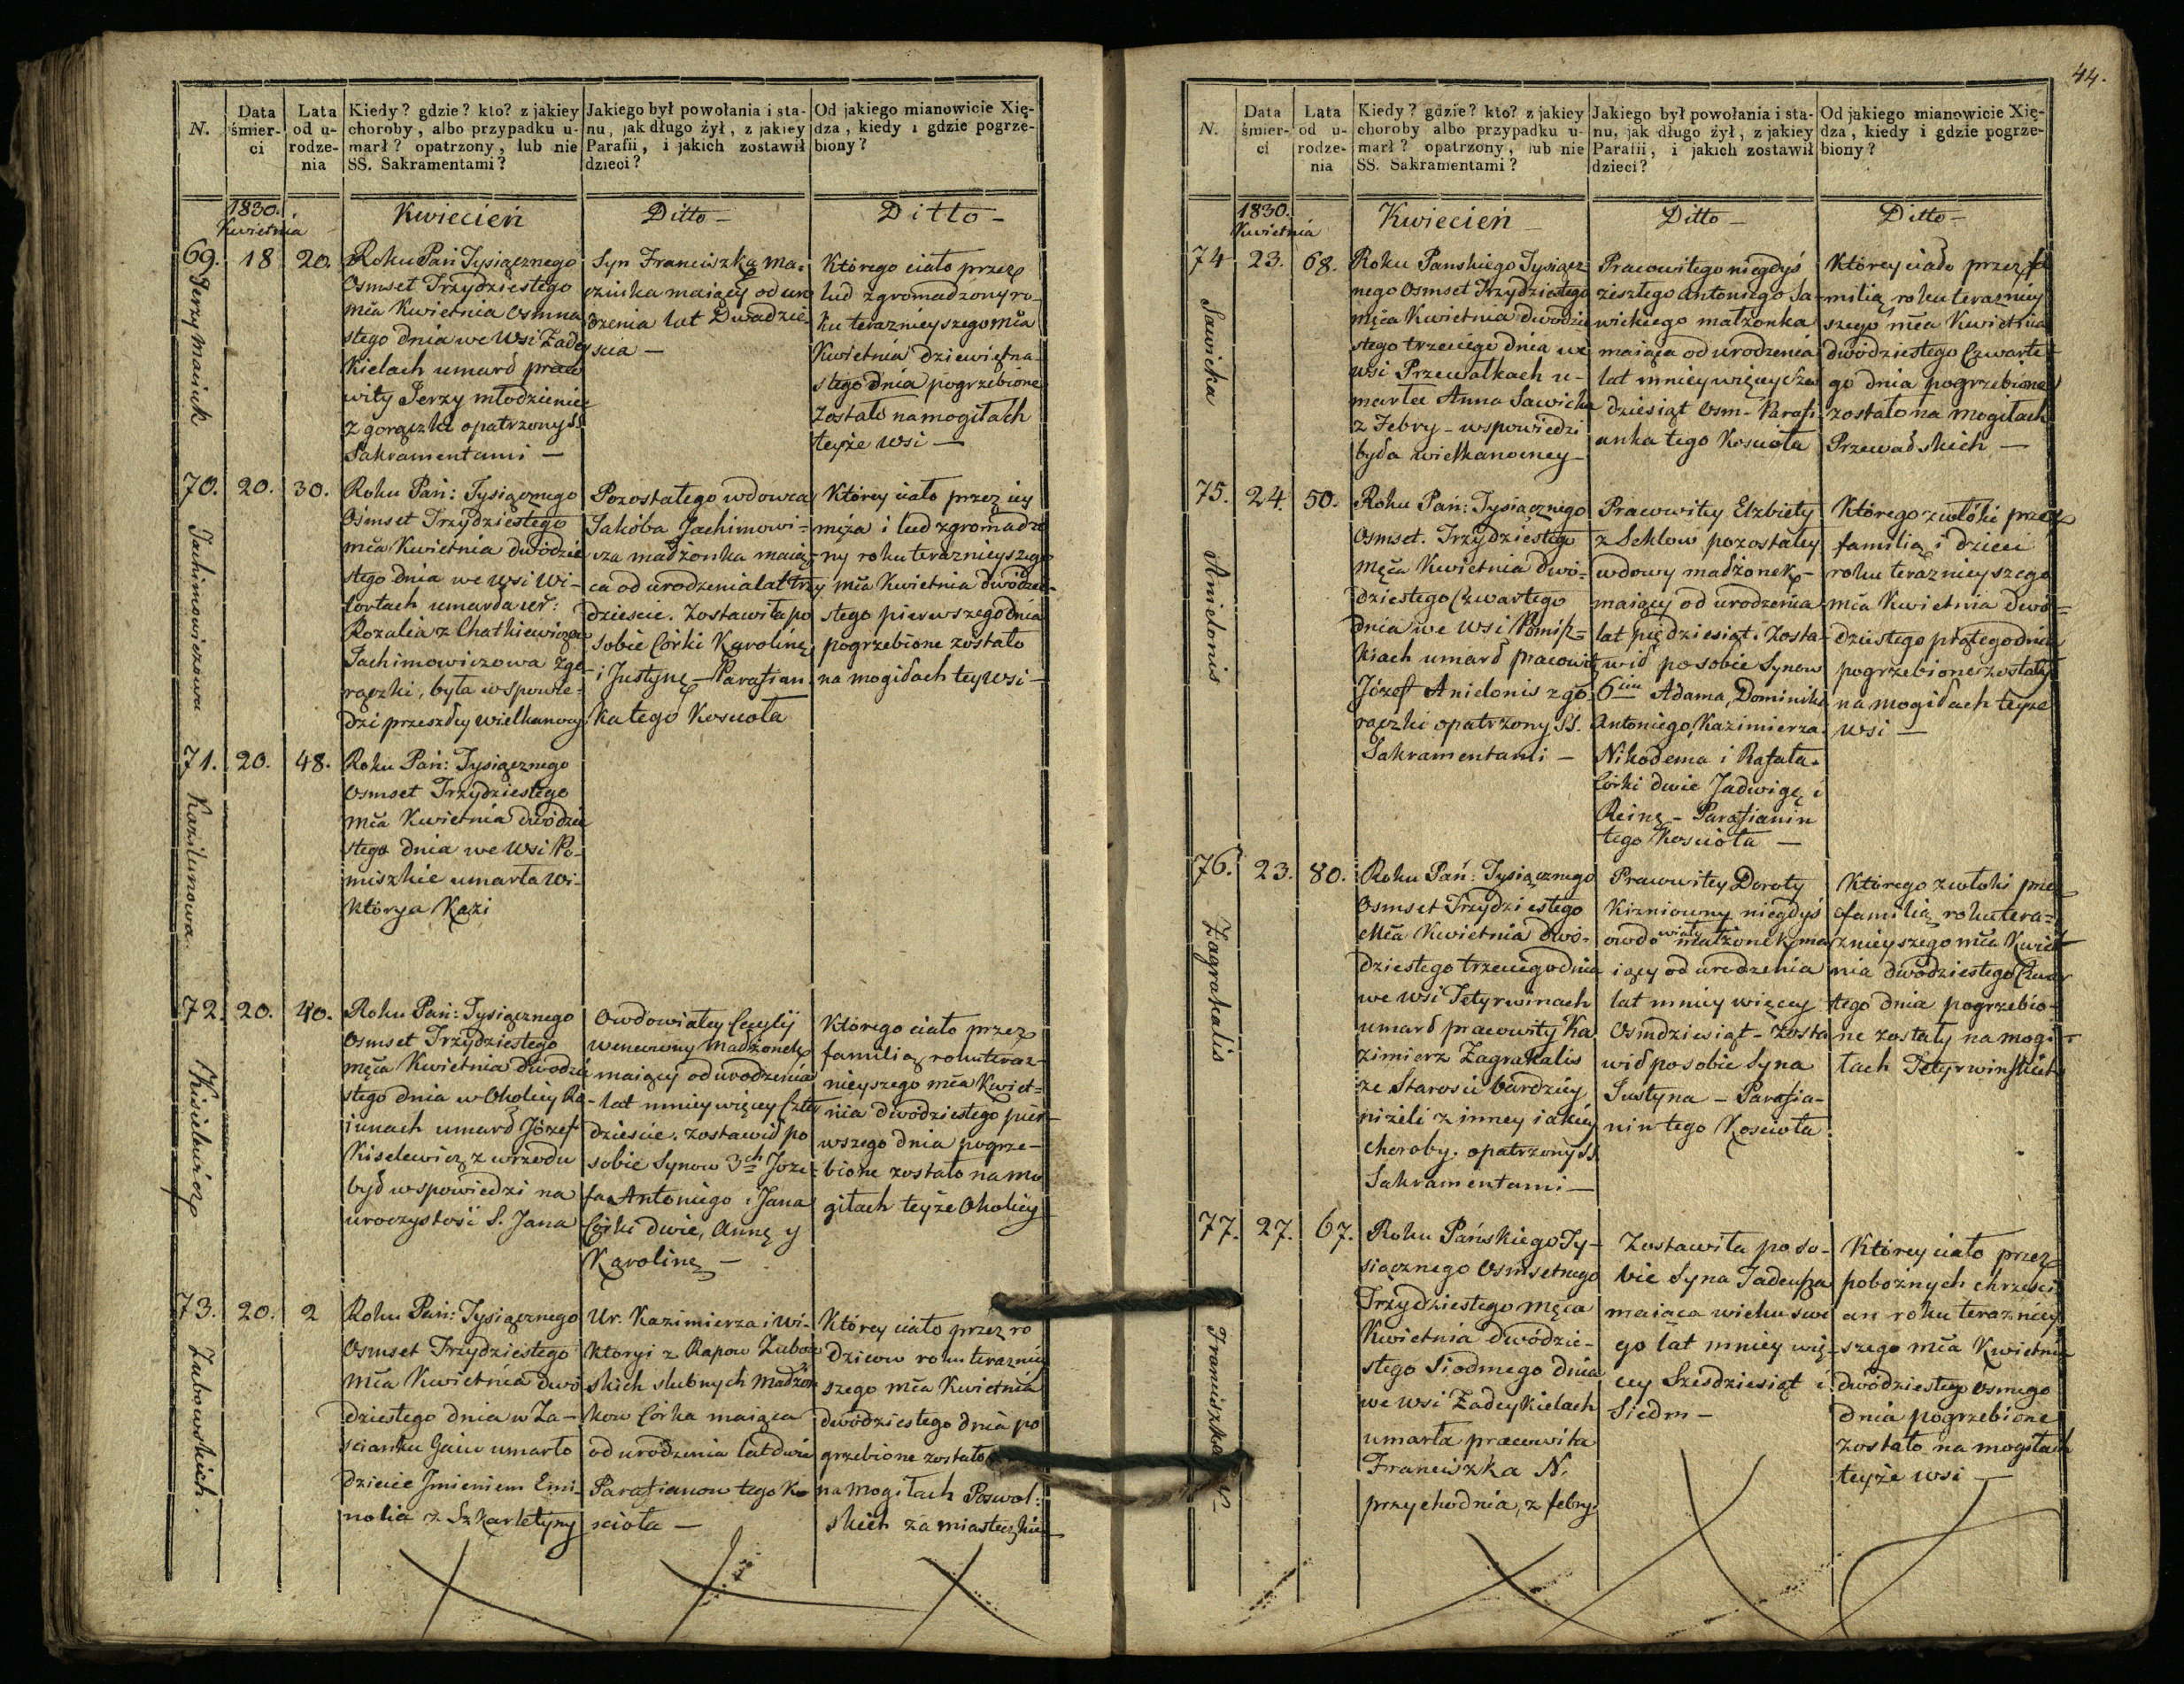 N.
Data śmier-
ci
Lata od u-
rodze-
nia
Kiedy? gdzie? kto? z jakiey
choroby, albo przypadku u-
marł? opatrzony, lub nie
SS. Sakramentami?
Jakiego był powołania i sta-
nu, jak długo żył, z jakiey
Parafii, i jakich zostawił
dzieci?
Od jakiego mianowicie Xię-
dza, kiedy i gdzie pogrze-
biony?
1830.
Kwietnia
Kwiecień
Ditto
Ditto
69. 18 20.
Jerzy Maciuk
Roku Pań Tysiącznego
Osmset Trzydziestego
mca Kwietnia Osmna
stego dnia we Wsi Zadey
kielach umarł praco
wity Jerzy młodzieniec
z gorączki opatrzony S.
Sakramentami
Syn Franciszka Ma-
czuka maiący od uro
dzenia lat Dwadzie
scia
Którego ciało przez
lud zgromadzony ro-
ku teraznieyszego mca
Kwietnia dziewiętna-
stego dnia pogrzebione
zostało na mogiłach
teyże wsi
70. 20. 30.
Jachimowiczowa
Roku Pań: Tysiącznego
Osmset Trzydziestego
mca Kwietnia dwódzie
stego dnia we wsi Wi-
tortach umarła ur:
Rozalia z Chatkiewiczow
Jachimowiczowa z go-
rączki, była w spowie-
dzi przeszłey wielkanocy
Pozostałego wdowca
Jakóba Jachimowi-
cza małżonka maią-
ca od urodzenia lat trzy
dziescie. Zostawiła po
sobie Córki Karolinę
i Justynę Parafian
ka tego Koscioła
Którey ciało przez iey
męża i lud zgromadzo
ny roku teraznieyszego
mca Kwietnia dwódzie-
stego pierwszego dnia
pogrzebione zostało
na mogiłach tey wsi
71. 20. 48.
Kazilunowa
Roku Pań: Tysiącznego
Osmset Trzydziestego
mca Kwietnia dwódzie
stego dnia we Wsi Po-
miszkie umarła Wi-
ktorya Kazi
72. 20. 40.
Kisielewicz
Roku Pań: Tysiącznego
Osmset Trzydziestego
męca Kwietnia dwódzie
stego dnia w Okolicy Ra-
iunach umarł Józef
Kiselewicz z wrzodu
był w spowiedzi na
uroczystość S. Jana
Owdowiałey Cecylij
małżonek
maiący od urodzenia
lat mniey więcey Czter
dziescie. zostawił po
sobie Synow 3ch Joze-
fa Antoniego i Jana
Córki dwie, Annę y
Karolinę
Którego ciało przez
familią roku teraz-
nieyszego mca Kwiet-
nia dwódziestego pier-
wszego dnia pogrze-
bione zostało na mo
giłach teyże Okolicy
73. 20. 2
Zubowskich
Roku Pań: Tysiącznego
Osmset Trzydziestego
mca Kwietnia dwó
dziestego dnia w Za-
scianku Gaiu umarło
dziecie Jmieniem Emi-
nolia z Szkarletyny
Ur. Kazimierza i Wi-
ktoryi z Rapow Zubow
skich slubnych małżon
kow Córka maiąca
od urodzenia lat dwie
Parafianow tego Ko
scioła
Którey ciało przez ro
dzicow roku teraznie
szego mca Kwietnia
dwódziestego dnia po
grzebione zostało
na mogiłach Poswol:
skich za miasteczkiem
44.
N.
Data śmier-
ci
Lata od u-
rodze-
nia
Kiedy? gdzie? kto? z jakiey
choroby albo przypadku u-
marł? opatrzony, lub nie
SS. Sakramentami?
Jakiego był powołania i sta-
nu, jak długo żył, z jakiey
Parafii, i jakich zostawił
dzieci?
Od jakiego mianowicie Xię-
dza, kiedy i gdzie pogrze-
biony?
1830.
Kwietnia
Kwiecień
Ditto
Ditto
74 23. 68.
Sawicka
Roku Panskiego Tysiącz
nego Osmset Trzydziestego
męca Kwietnia dwodzie
stego trzeciego dnia we
wsi Przewałkach u-
marła Anna Sawicka
z Febry w spowiedzi
była wielkanocney
Pracowitego niegdyś
zeszłego Antoniego Sa-
wickiego małżonka
maiąca od urodzenia
lat mniey więcey Sześ
dziesiąt Osm Parafi
anka tego Koscioła
Którey ciało przez fa
milią roku terazniey
szego mca Kwietnia
dwódziestego Czwarte
go dnia pogrzebione
zostało na mogiłach
Przewałskich
75. 24. 50.
Anielonis
Roku Pań: Tysiącznego
Osmset. Trzydziestego
męca Kwietnia dwó-
dziestego Czwartego
dnia we wsi Pomisz-
kiach umarł pracowity
Józef Anielonis z go-
rączki opatrzony SS.
Sakramentami
Pracowitey Elzbiety
z Seklow pozostałey
wdowy małżonek
maiący od urodzenia
lat piędziesiąt. Zosta-
wił po sobie Synow
6ciu Adama, Dominika
Antoniego, Kazimierza
Nikodema i Rafała.
Córki dwie Jadwigę i
Reinę Parafianin
tego Koscioła
Którego zwłóki przez
familią i dzieci
roku teraznieyszego
mca Kwietnia dwó-
dziestego piątego dnia
pogrzebione zostały
na mogiłach teyże
wsi
76. 23. 80.
Zagrakalis
Roku Pań: Tysiącznego
Osmset Trzydziestego
Mca Kwietnia dwó-
dziestego trzeciego dnia
we wsi Tetyrwinach
umarł pracowity Ka
zimierz Zagrakalis
ze Starosci bardziey
niżeli z inney iakiey
choroby. opatrzony SS.
Sakramentami
Pracowitey Doroty
Kizniowny niegdyś
owdowiałey małżonek ma
iący od urodzenia
lat mniey więcey
Osmdziesiąt Zosta
wił po sobie Syna
Justyna Parafia-
nin tego Koscioła
Którego zwłoki przez
familią roku tera-
znieyszego mca Kwiet
nia dwódziestego Czwar
tego dnia pogrzebio-
ne zostały na mogi-
łach Tetyrwinskich
77. 27. 67.
Franciszka
Roku Pańskiego Ty-
siącznego Osmsetnego
Trzydziestego męca
Kwietnia dwódzie-
stego Siodmego dnia
we wsi Zadeykielach
umarła pracowita
Franciszka N.
przychodnia, z febry
Zostawiła po so-
bie Syna Tadeusza
maiąca wieku swe
go lat mniey wię-
cey Szesdziesiąt i
Siedm
Którey ciało przez
pobożnych chrzesci
an roku terazniey
szego mca Kwietnia
dwódziestego Osmego
dnia pogrzebione
zostało na mogiłach
teyże wsi